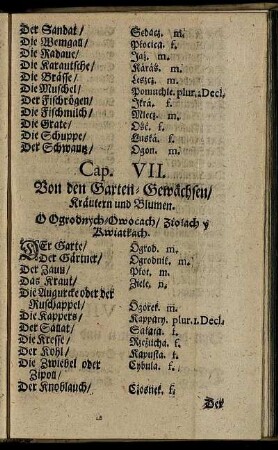 Der Sandat/ Sedacz. m.
Die Weingall/ Płocica. f.
Die Radaue/ Jaź. m.
Die Karautsche/ Karáś. m.
Die Brässe/ Leszcz. m.
Die Muschel/ Pomuchle. plur. 2 Decl.
Der Fischrögen/ Ikrá. f.
Die Fischmilch/ Mlecz. m.
Die Grate/ Ość. f.
Die Schuppe/ Luská. f.
Der Schwantz/ Ogon. m.
Cap. VII.
Von den Garten-Gewächsen/
Kräutern und Blumen.
O Ogrodnych Owocach/ Ziolach y
Kwiatkach.
DEr Garte/ Ogrod. m.
Der Gärtner/ Ogrodnik. m.
Der Zaun/ Płot. m.
Das Kraut/ Ziele. n.
Die Augurcke oder der
Ruschappel/ Ogorek. m.
Die Kappers/ Kappary. plur. 1. Decl.
Der Salat/ Salata. f.
Die Kresse/ Rzeżucha. f.
Der Kohl/ Kapusta. f.
Die Zwiebel oder
Zipoll/ Cybula. f.
Der Knoblauch/ Czosnek. f.
Der